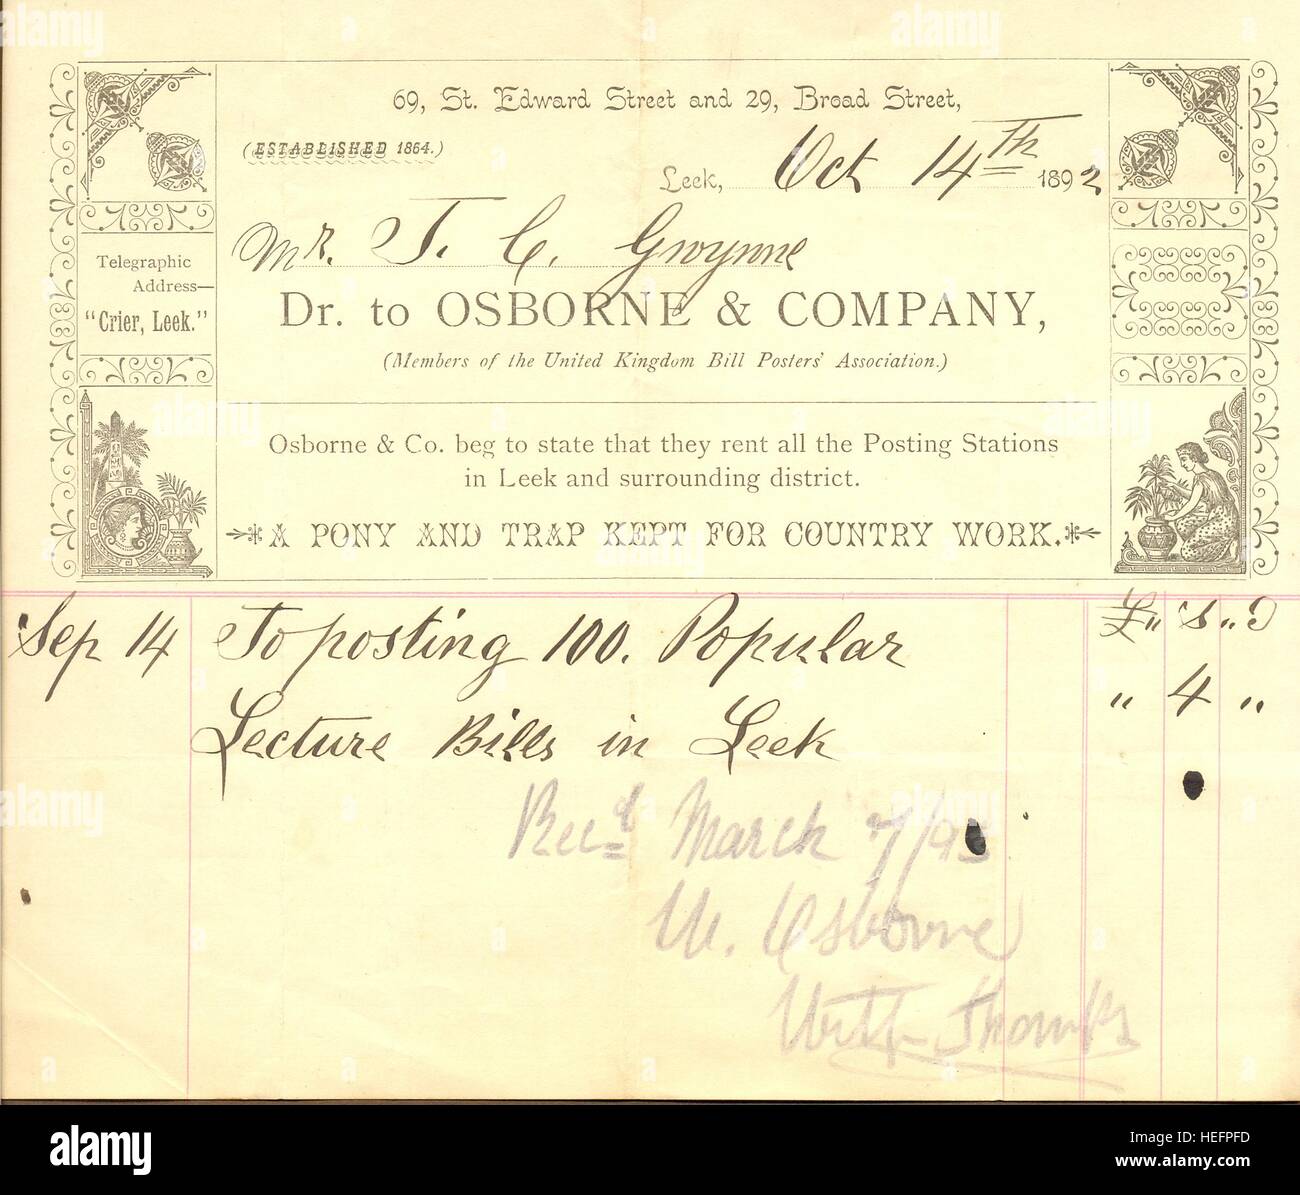 69, St. Edward Street and 29, Broad Street,
(ESTABLISHED 1864.)
Leek, Oct 14th 1892
Telegraphic
Address—
"Crier, Leek."
Mr. T. C. Gwynne
Dr. to OSBORNE & COMPANY,
(Members of the United Kingdom Bill Posters' Association.)
Osborne & Co. beg to state that they rent all the Posting Stations
in Leek and surrounding district.
A PONY AND TRAP KEPT FOR COUNTRY WORK.
£ " s " D
Sep 14 To posting 100. Popular
Lecture Bills in Leek " 4 "
Recd March 7/93
W. Osborne
With Thanks
alamy
Image ID: HEFPFD
www.alamy.com